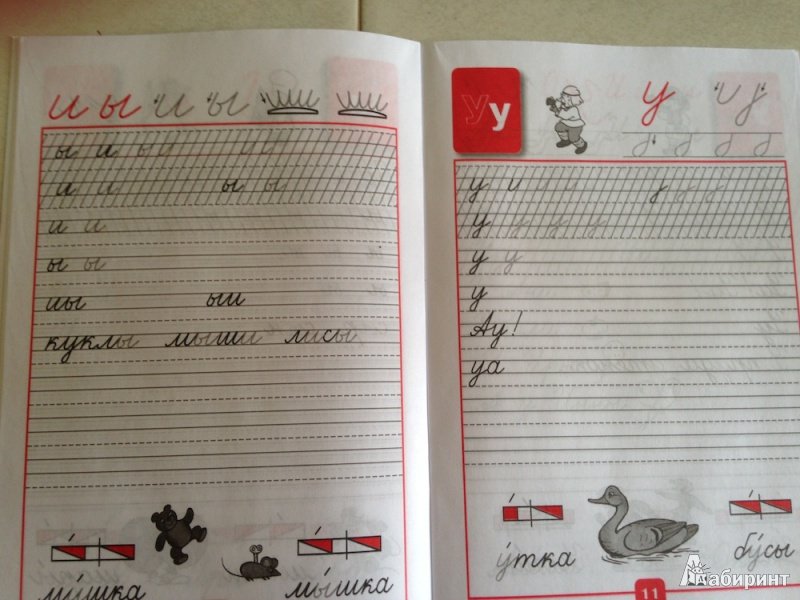 и ы и ы
ы и ы и
и и ы ы
и и
ы ы
иы ыи
куклы мыши лисы
ми́шка мы́шка
Уу у
у и
у у у у
у у
у
Ау!
уа
у́тка бу́сы
11
Лабиринт